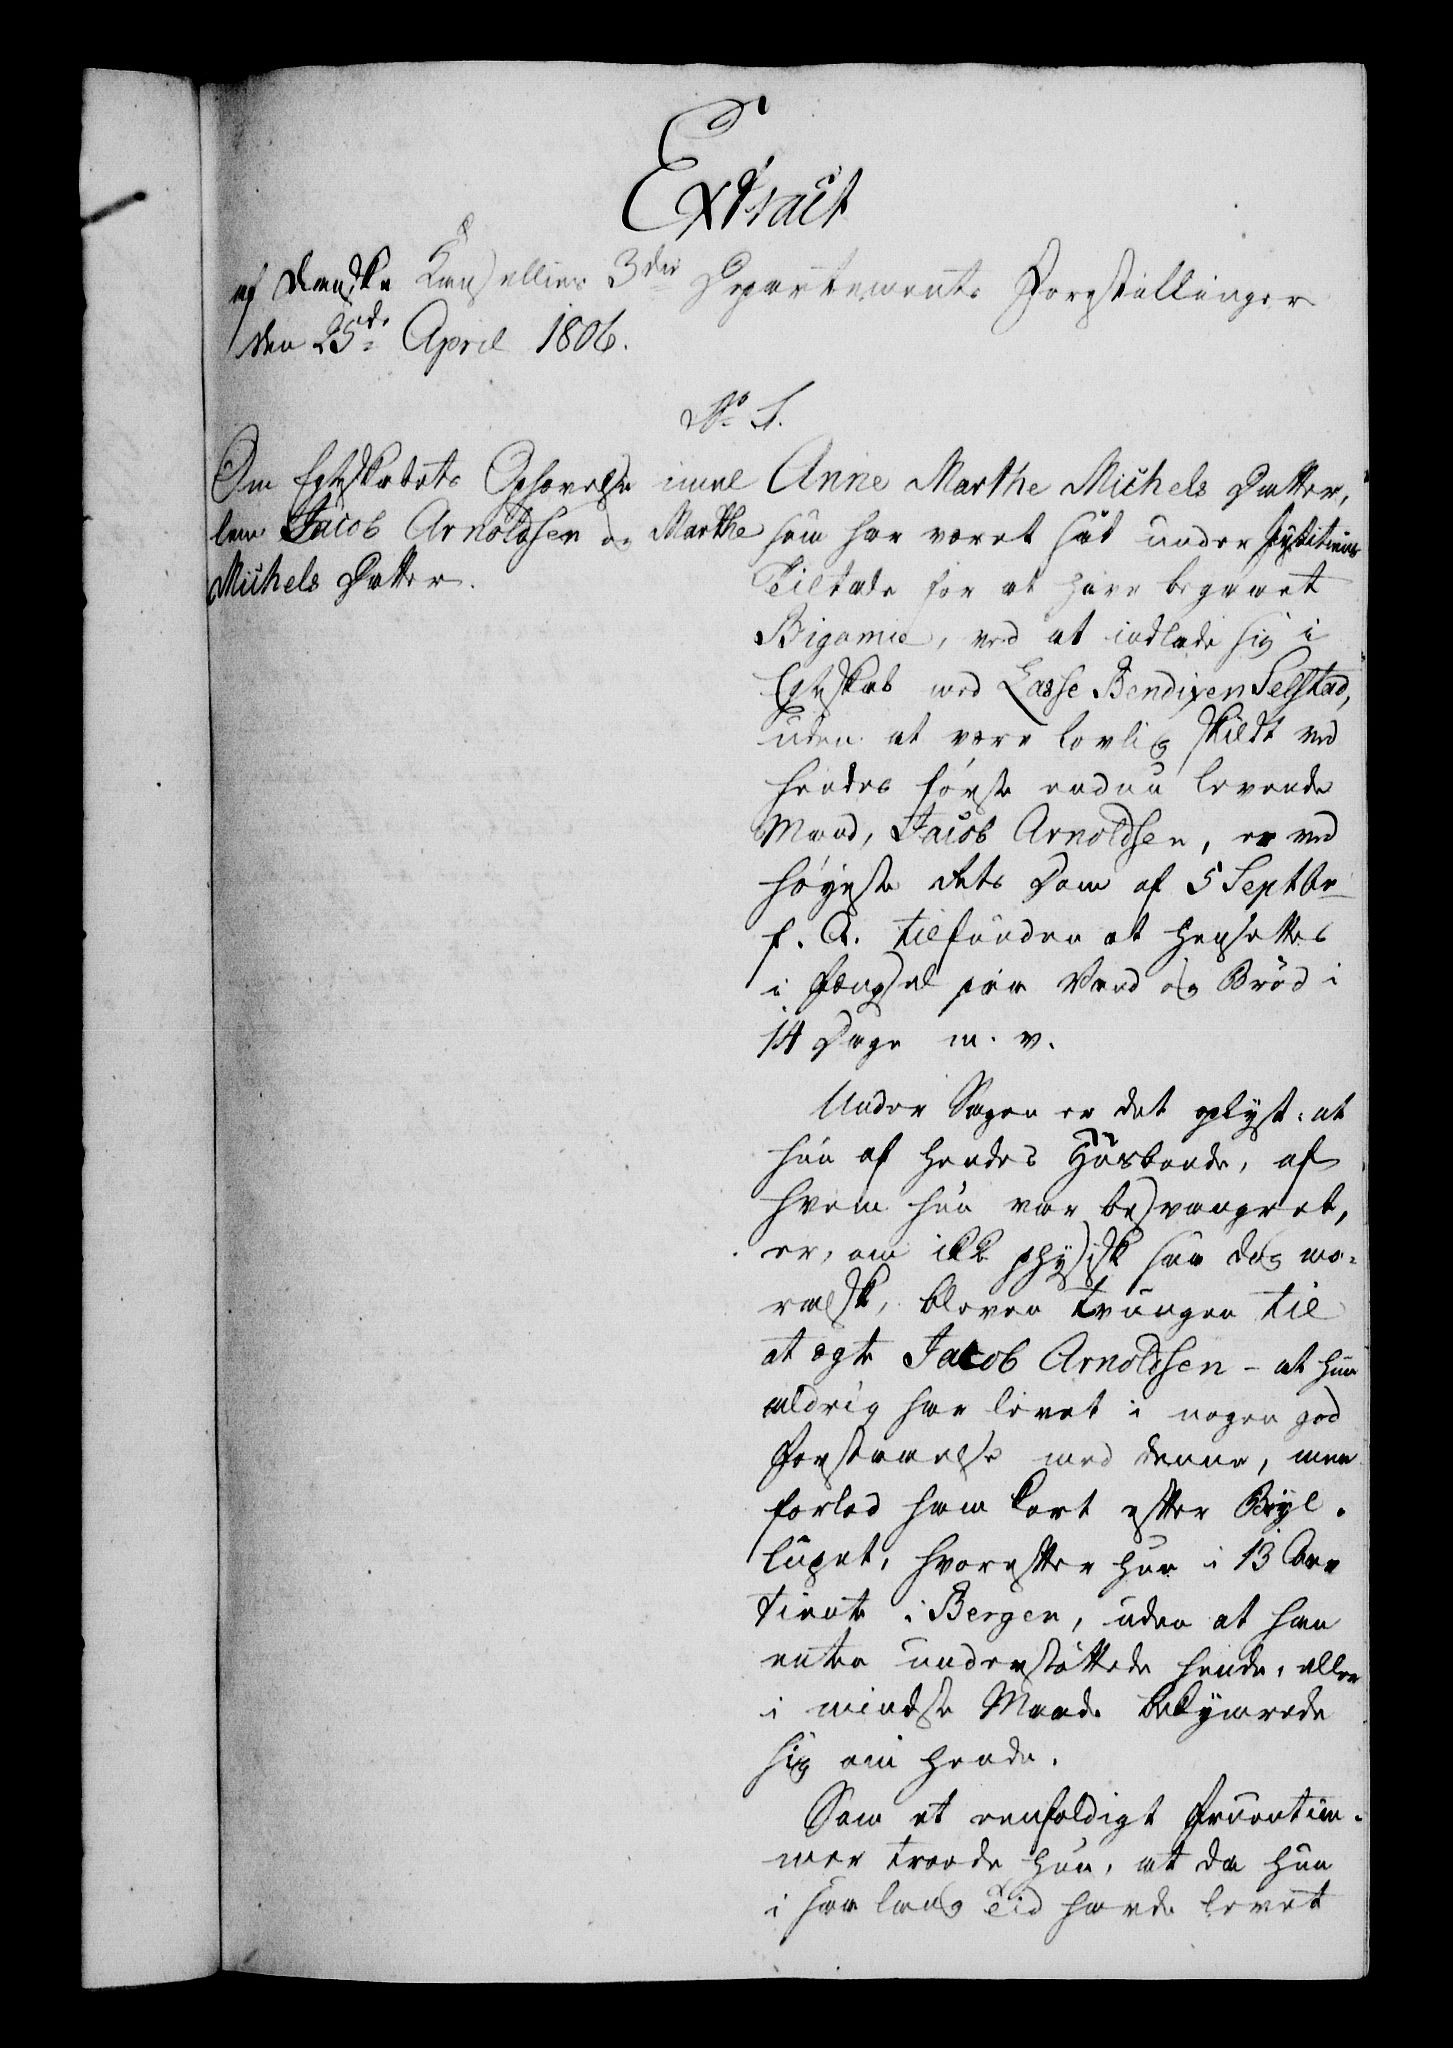 Extract
af Danske Cancelliets 3die Departements Forestillinger
den 25de April 1806.
No 1.
Om Egteskabets Ophævelse imel
lem Jacob Arnoldsen og Marthe
Michels Datter.
Anne Marthe Michels Datter,
som har været sat under Justitiens
Tiltale for at have begaaet
Bigamie, ved at indlade sig i
Egteskab med Lasse Bendixen Selstad,
uden at være lovlig skildt ved
hendes første endnu levende
Mand, Jacob Arnoldsen, er ved
Høyeste Rets Dom af 5 Septbr
f. A. tilfunden at hensættes
i Fængsel paa Vand og Brød i
14 Dage m. v.
Under Sagen er det oplyst: at
hun af hendes Huusbonde, af
hvem hun var besvangret,
er, om ikke physisk saa dog mo-
ralsk, bleven tvungen til
at ægte Jacob Arnoldsen - at hun
aldrig har levet i nogen god
Forstaaelse med denne, men
forlod ham kort efter Bryl-
lupet, hvorefter hun i 13 Aar
tiente i Bergen, uden at han
enten understøttede hende, eller
i mindste Maade bekymrede
sig om hende.
Som et eenfoldigt Fruentim-
mer troede hun, at da hun
i saa lang Tid havde levet